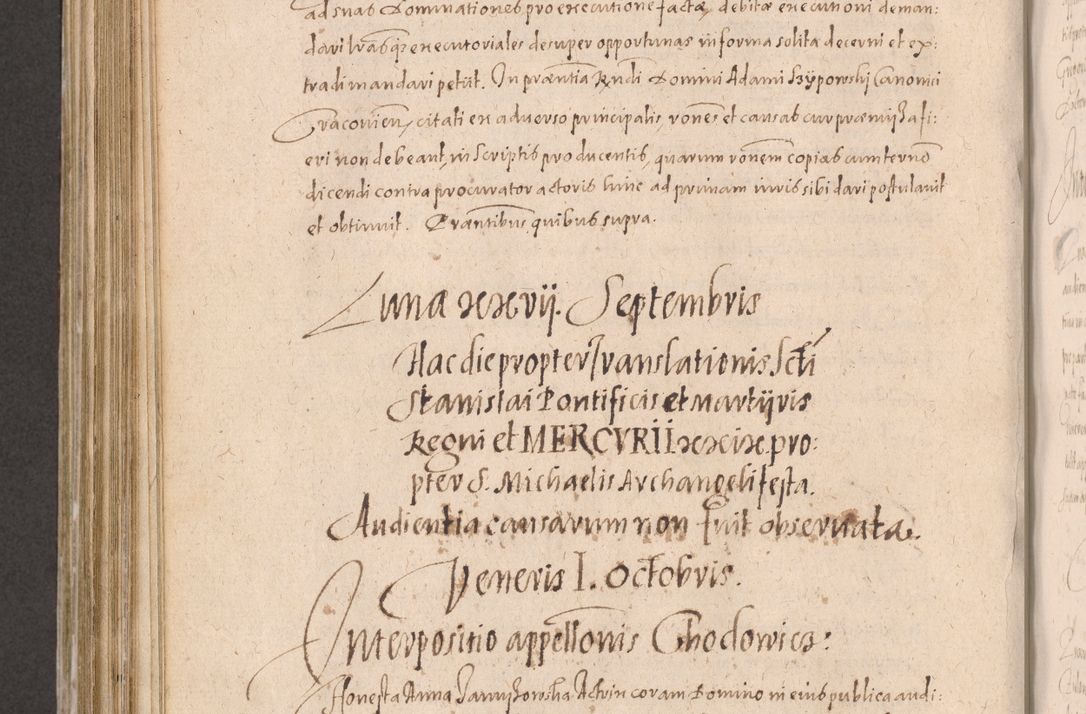 ad suas Dominationes pro executione factæ, debitæ executioni deman:
dari lrasq̃ executoriales desuper opportunas in forma solita decerni et ex:
tradi mandari petiit. In præntia Rndi Domini Adami Canonici
Cracovien, citati ex adverso principalis, rones et causas cur præmissa fi:
eri non debeant, in scriptis producentis, quarum ronem copias cum terno
dicendi contra procurator actoris hinc ad primam iuris sibi dari postulavit
et obtinuit. Præntibus quibus supra.
Luna xxvij. Septembris
Hac die propter Translationis Scti
Stanislai Pontificis et martyris
Regni et MERCVRII xxix. pro:
pter S. Michaelis Archangeli festa.
Audientia causarum non fuit observata.
Veneris I. Octobris.
Interpositio appellonis
Honesta Anna Actrix coram Domino in eius publica audi: